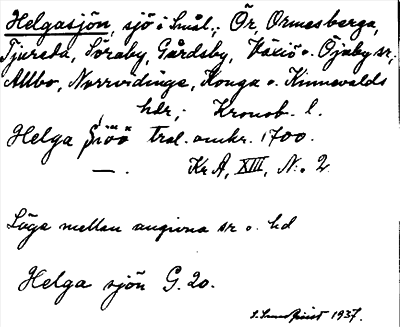 Helgasjön, sjö i Smål.; Ör, Ormesberga,
Tjureda, Söraby, Gårdsby, Växiö o. Öjaby sr;
Allbo, Norrvidinge, Konga o. Kinnevalds
hdr; Kronob. l.
Helga Siöö tral. omkr. 1700.
—.  KrA, XIII, N:o 2
Läge mellan angivna sr o. hd
Helga sjön G. 20.
1937.